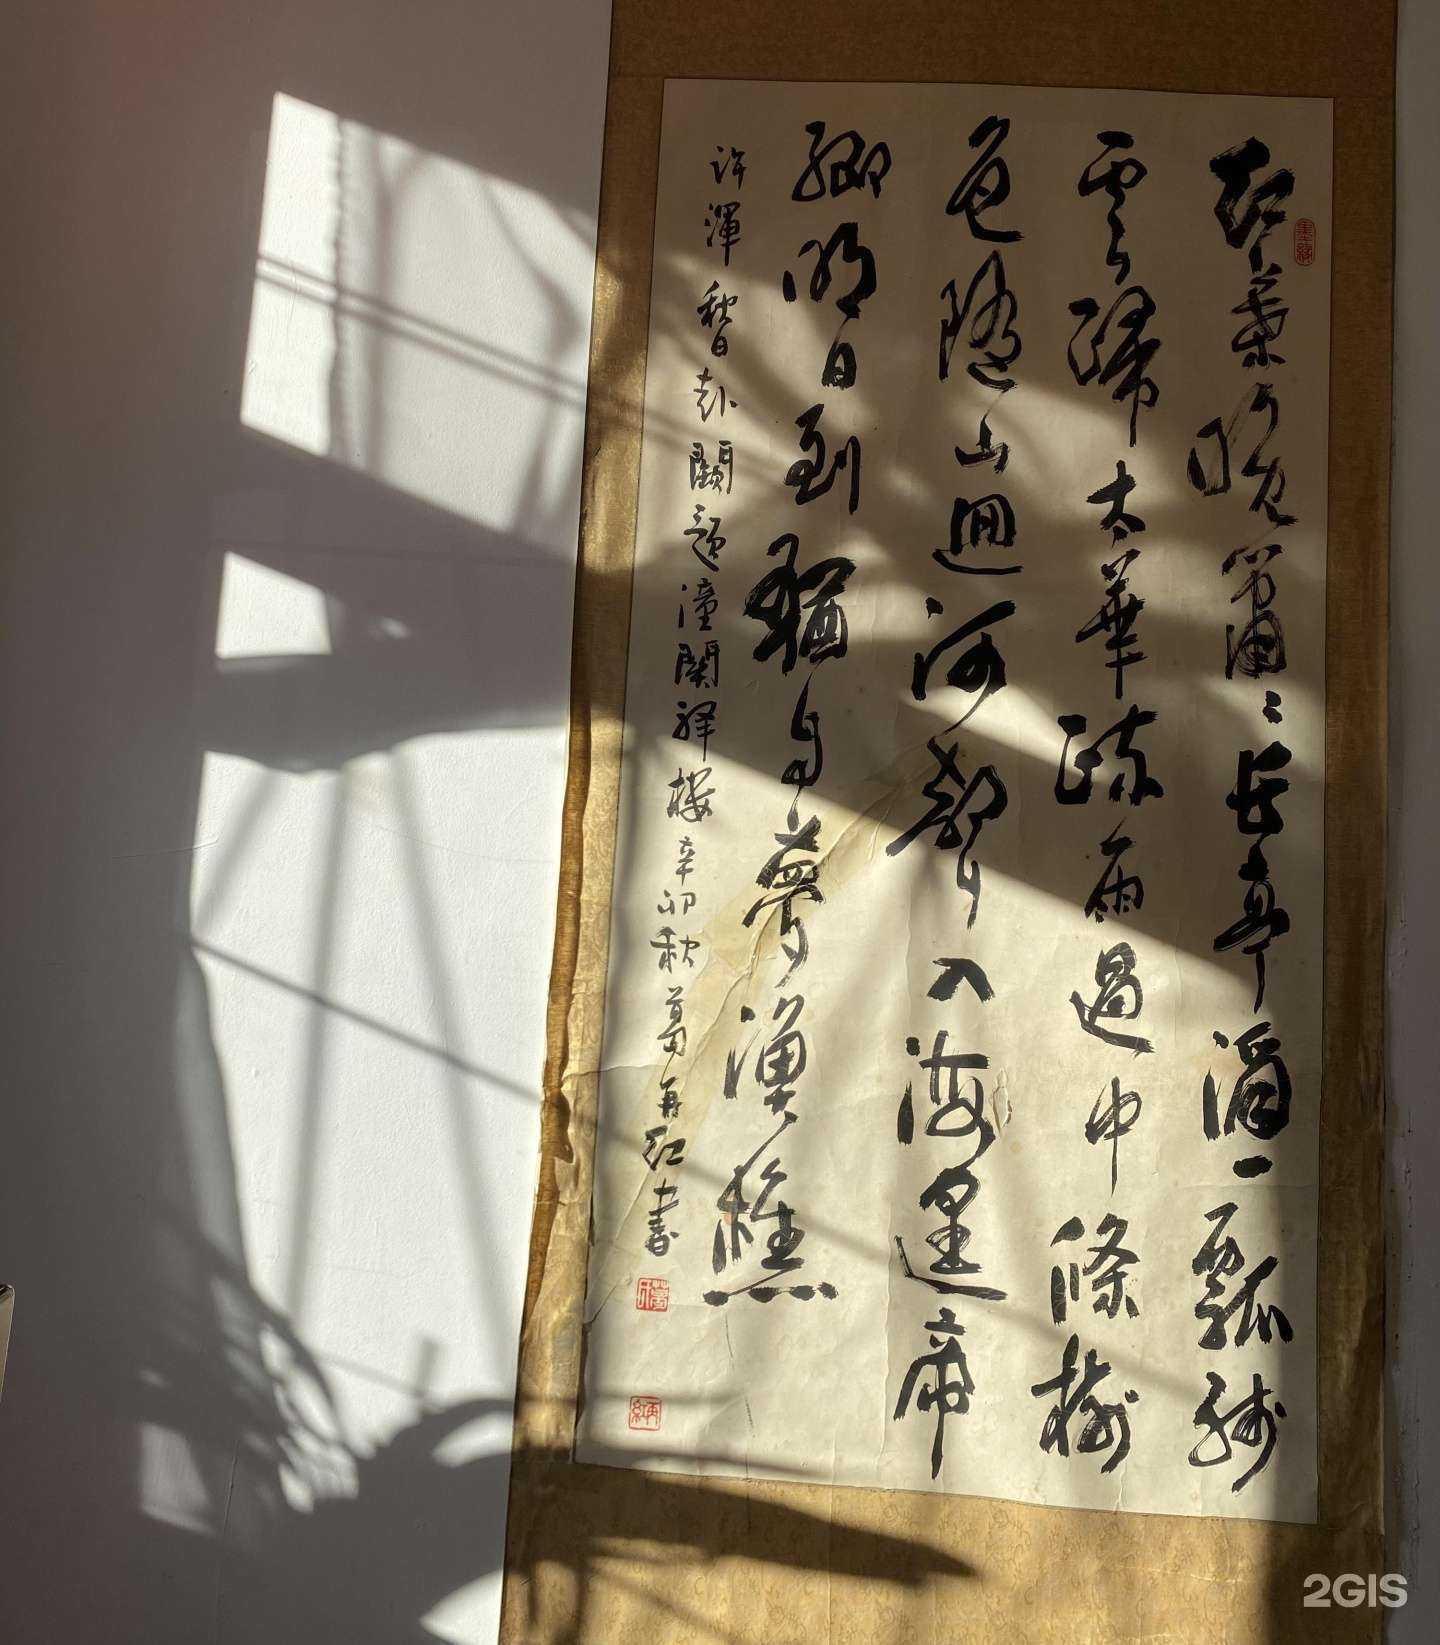 墨緣
紅葉晚蕭〻長亭酒一瓢殘
雲歸太華疏雨過中條樹
色隨山迴河聲入海遙帝
鄉明日到猶自夢漁樵
許渾秋日赴闕題潼關驛樓辛卯秋葛再紅書
葛印
再紅
2GIS